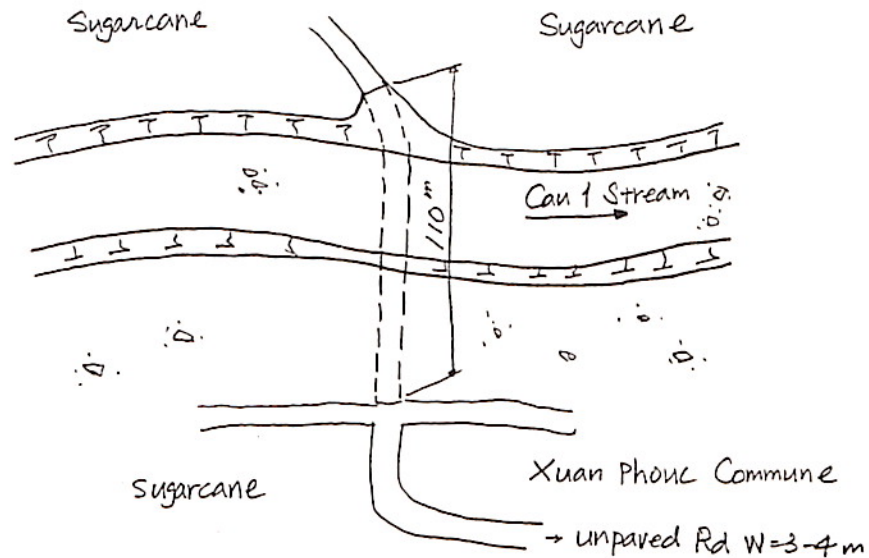 Sugarcane
Sugarcane
Cau 1 Stream
110 m
Sugarcane
Xuan Phouc Commune
→ unpaved Rd W=3-4 m